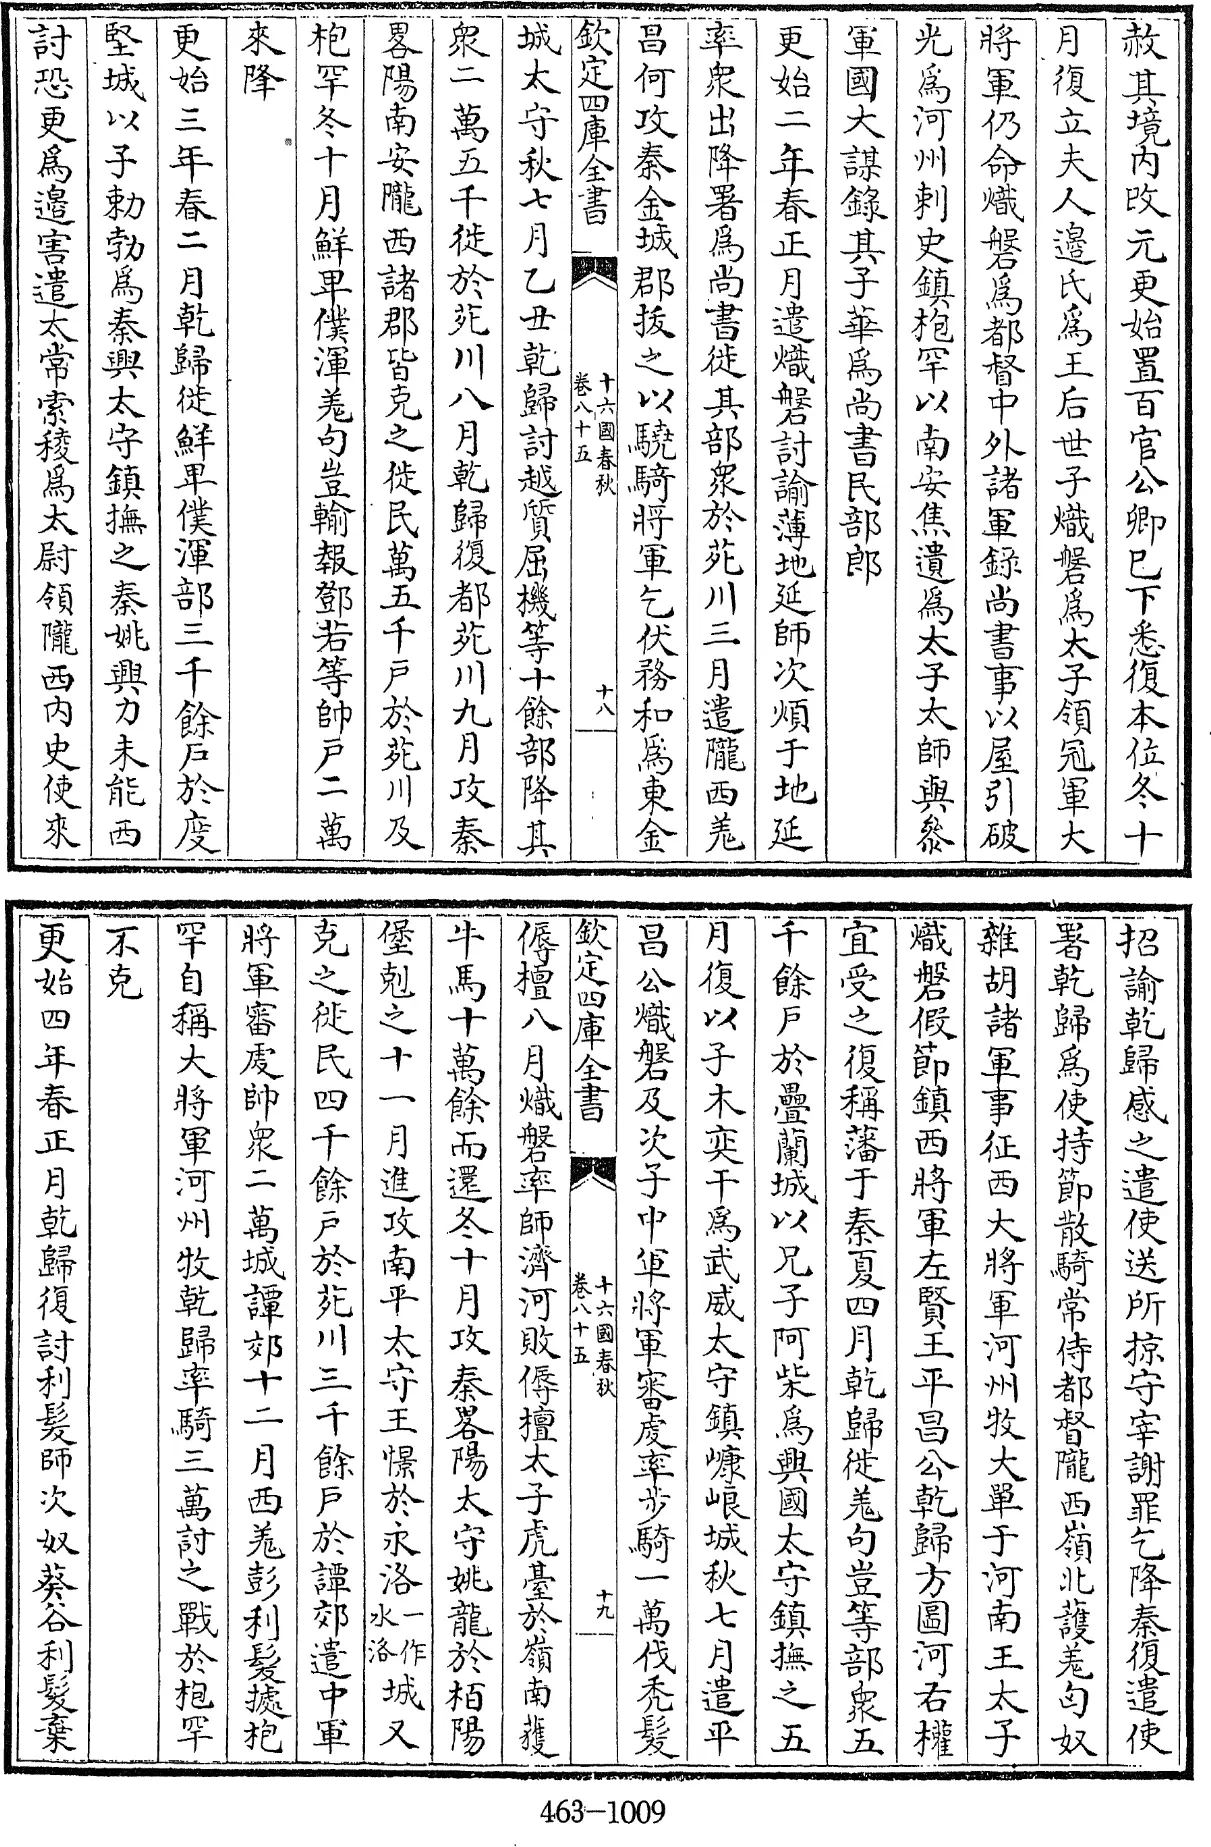 赦其境内改元更始置百官公卿巳下悉復本位冬十
月復立夫人邉氏爲王后世子熾磐爲太子領冠軍大
將軍仍命熾磐爲都督中外諸軍錄尚書事以屋引破
光爲河州刺史鎮枹罕以南安焦遺爲太子太師與叅
軍國大謀錄其子華爲尚書民部郎
更始二年春正月遣熾磐討諭薄地延師次煩于地延
率衆出降署爲尚書徙其部衆於苑川三月遣隴西羌
昌何攻秦金城郡拔之以驍騎將軍乞伏務和爲東金
欽定四庫全書
十六國春秋
卷八十五
十八
城太守秋七月乙丑乾歸討越質屈機等十餘部降其
衆二萬五千徙於苑川八月乾歸復都苑川九月攻秦
畧陽南安隴西諸郡皆克之徙民萬五千戸於苑川及
枹罕冬十月鮮卑僕渾羌句豈輸報鄧若等帥戸二萬
來降
更始三年春二月乾歸徙鮮卑僕渾部三千餘戸於度
堅城以子勅勃爲秦興太守鎮撫之秦姚興力未能西
討恐更爲邉害遣太常索稜爲太尉領隴西内史使來
招諭乾歸感之遣使送所掠守宰謝罪乞降秦復遣使
署乾歸爲使持節散騎常侍都督隴西嶺北䕶羌匈奴
雜胡諸軍事征西大將軍河州牧大單于河南王太子
熾磐假節鎮西將軍左賢王平昌公乾歸方圖河右權
宜受之復稱藩于秦夏四月乾歸徙羌句豈等部衆五
千餘戸於疊蘭城以兄子阿柴爲興國太守鎮撫之五
月復以子木奕干爲武威太守鎮嵻㟍城秋七月遣平
昌公熾磐及次子中軍將軍審虔率步騎一萬伐禿髮
欽定四庫全書
十六國春秋
卷八十五
十九
傉檀八月熾磐率師濟河敗傉檀太子虎臺於嶺南獲
牛馬十萬餘而還冬十月攻秦畧陽太守姚龍於栢陽
堡剋之十一月進攻南平太守王憬於永洛一作水洛城又
克之徙民四千餘戸於苑川三千餘戸於譚郊遣中軍
將軍審虔帥衆二萬城譚郊十二月西羌彭利髮據枹
罕自稱大將軍河州牧乾歸率騎三萬討之戰於枹罕
不克
更始四年春正月乾歸復討利髮師次奴葵谷利髮棄
463-1009